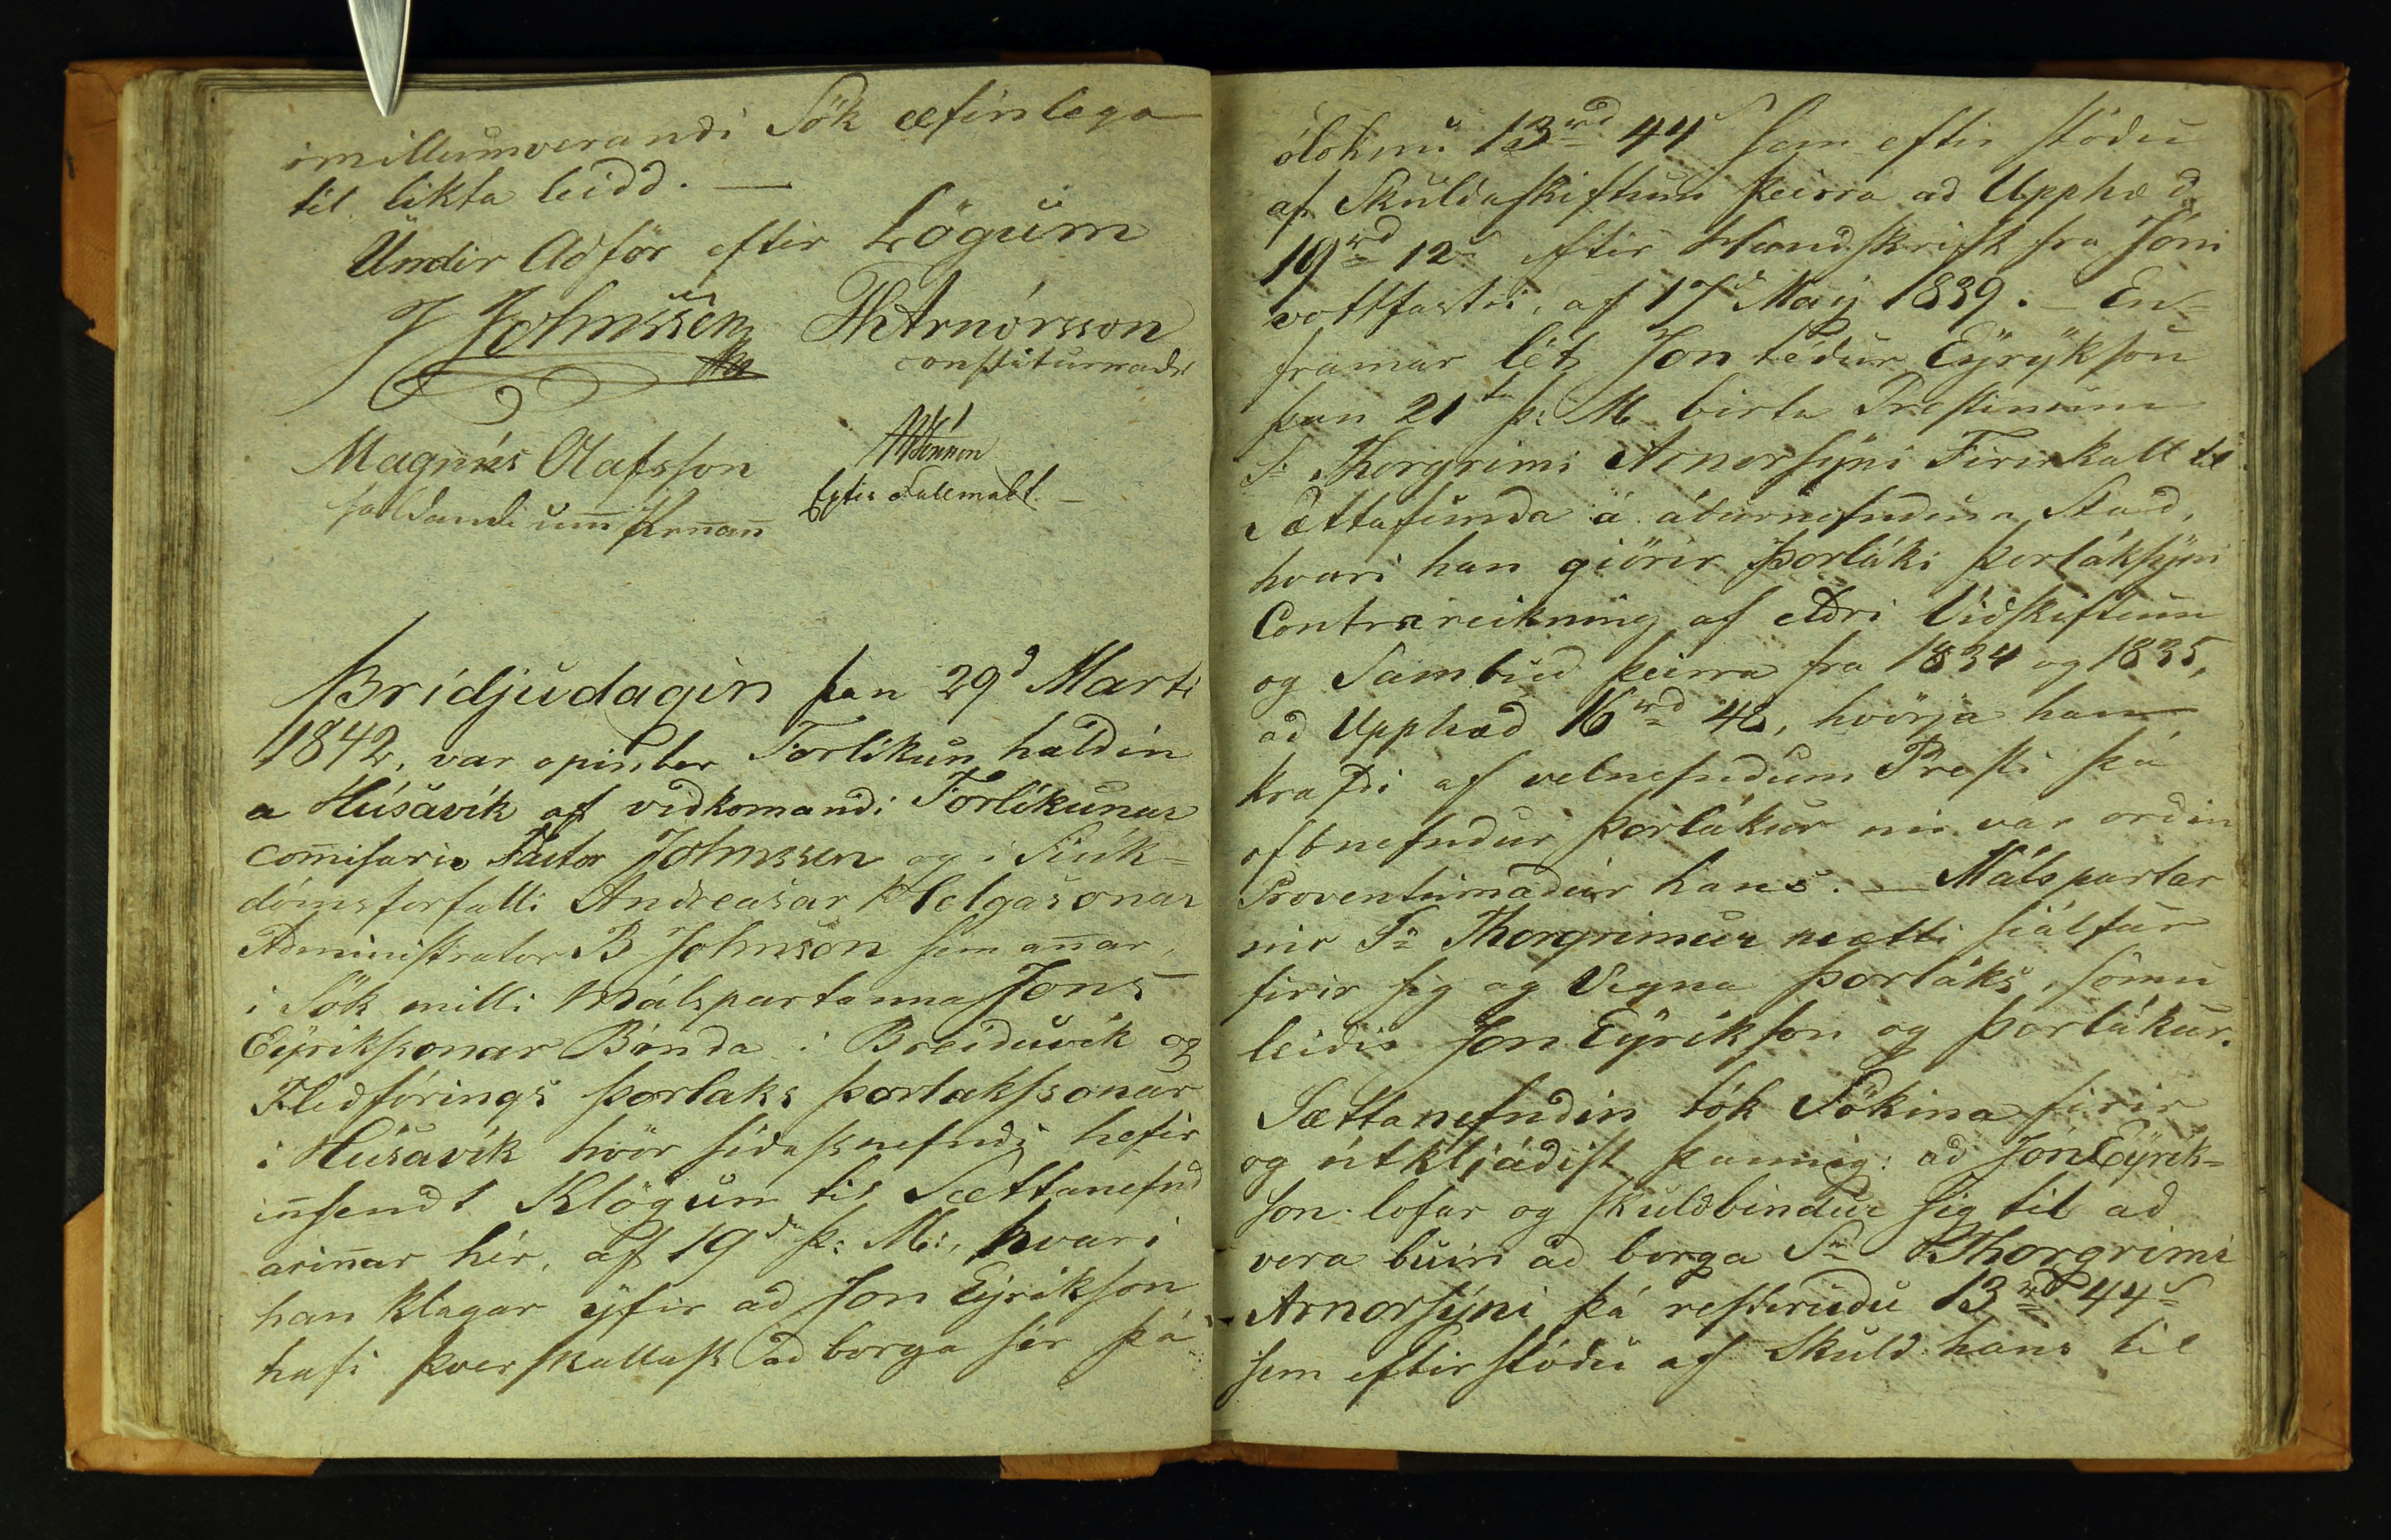 imillumverandi Sök æfinlega
til likta leidd. —
Undir Aðför eftir Lögum
J Johnssen ThArnórsson
constitueradr
Magnús Olafsson
haldandi um Pennan Eptir Fullmakt. —
Þridjudagin þan 29d Marti
1842, var opinber Forlikun haldin
a Húsavík af viðkomandi Forlikunar
com̄isario Pastor Johnssen og i Siúk-
dómsforfalli Andreasar Helgasonar
Administrator B Johnson sem an̄ar,
i Sök milli Málspartanna Jons
Eyrikssonar Bónda i Breiduvik og
Fledförings Þorlaks Þorlakssonar
i Húsavík hvör sídastnefndi hefir
in̄sendt Klögun til Sættanefnd
arin̄ar hér, af 19d þ: M:, hvari
han klagar ÿfir ad Jon Eyrikson
hafi þverskallast ad borga sér þá
óloknu 13rd 44s sem eftir stódu
af Skuldaskiftum þeirra ad Upphæd
19rd 12s eftir Handskrift fra Jóni
vottfastri, af 17d Maÿ 1839. — En-
framar lét Jon tédur Eÿrÿkson
þan 21ta þ: M birta Prestinum
Sr Thorgrimi Arnorsÿni Firirkall til
Sættafunda á ádurnefndum Stad,
hvari han giörir Þorláki Þorláksÿni
Contrareikning af eldri Vidskiftum
og Sambúd þeirra fra 1834 og 1835,
ad Upphæd 16rd 42, hvörja han
krafdi af velnefndum Presti þá
oftnefndur Þorlákur nú var ordin
Proventumadur hans. — Málspartar
nir Sr Thorgrimur mætti siálfur
firir sig og Vegna Þorláks, sömu
leidis Jon Eÿrikson og Þorlákur.
Sættanefndin tók Sökina firir
og útkljádist þannig: ad Jón Eyrik-
son lofar og skuldbindur sig til ad
vera búin ad borga Sr Thorgrimi
Arnorsÿni þá resterudu 13rd 44s
sem eftir stódu af Skuld hans til